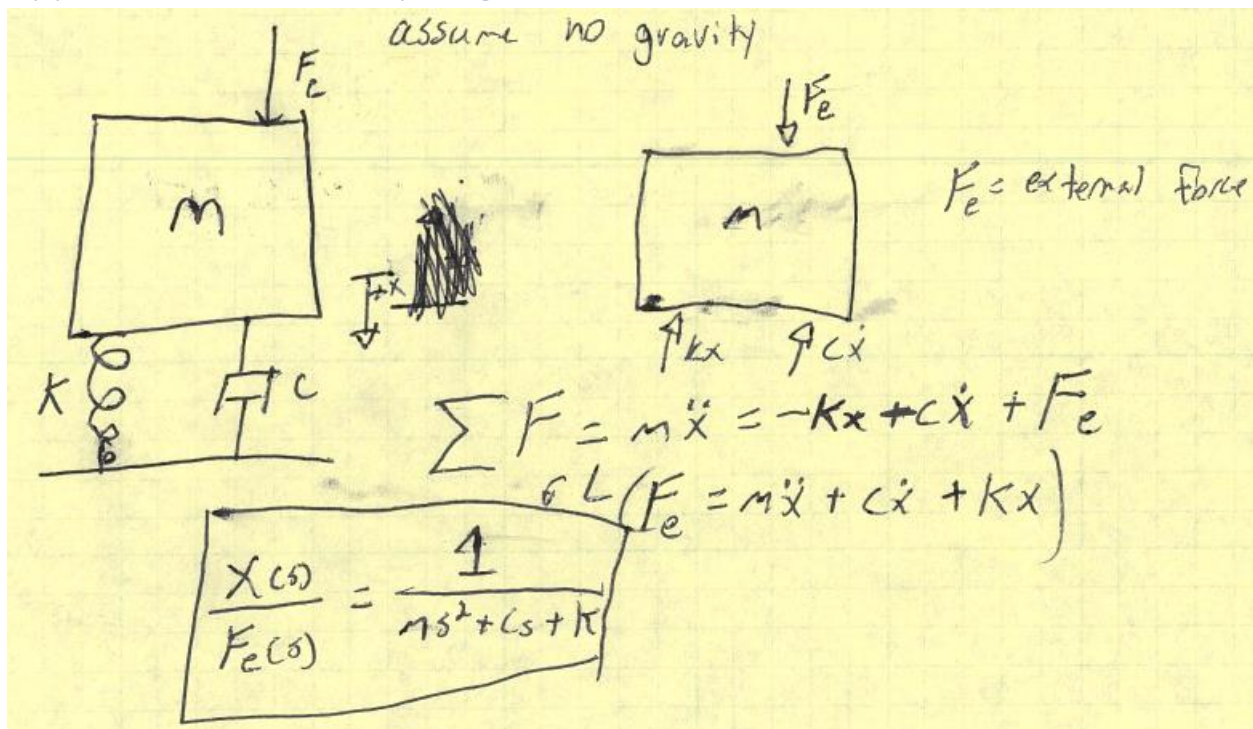 assume no gravity
Fe
m
+x
K
C
Fe
m
Kx
cẋ
Fe = external force
∑F = mẍ = -Kx + cẋ + Fe
L(Fe = mẍ + cẋ + Kx)
X(s)/Fe(s) = 1/(ms² + Cs + K)